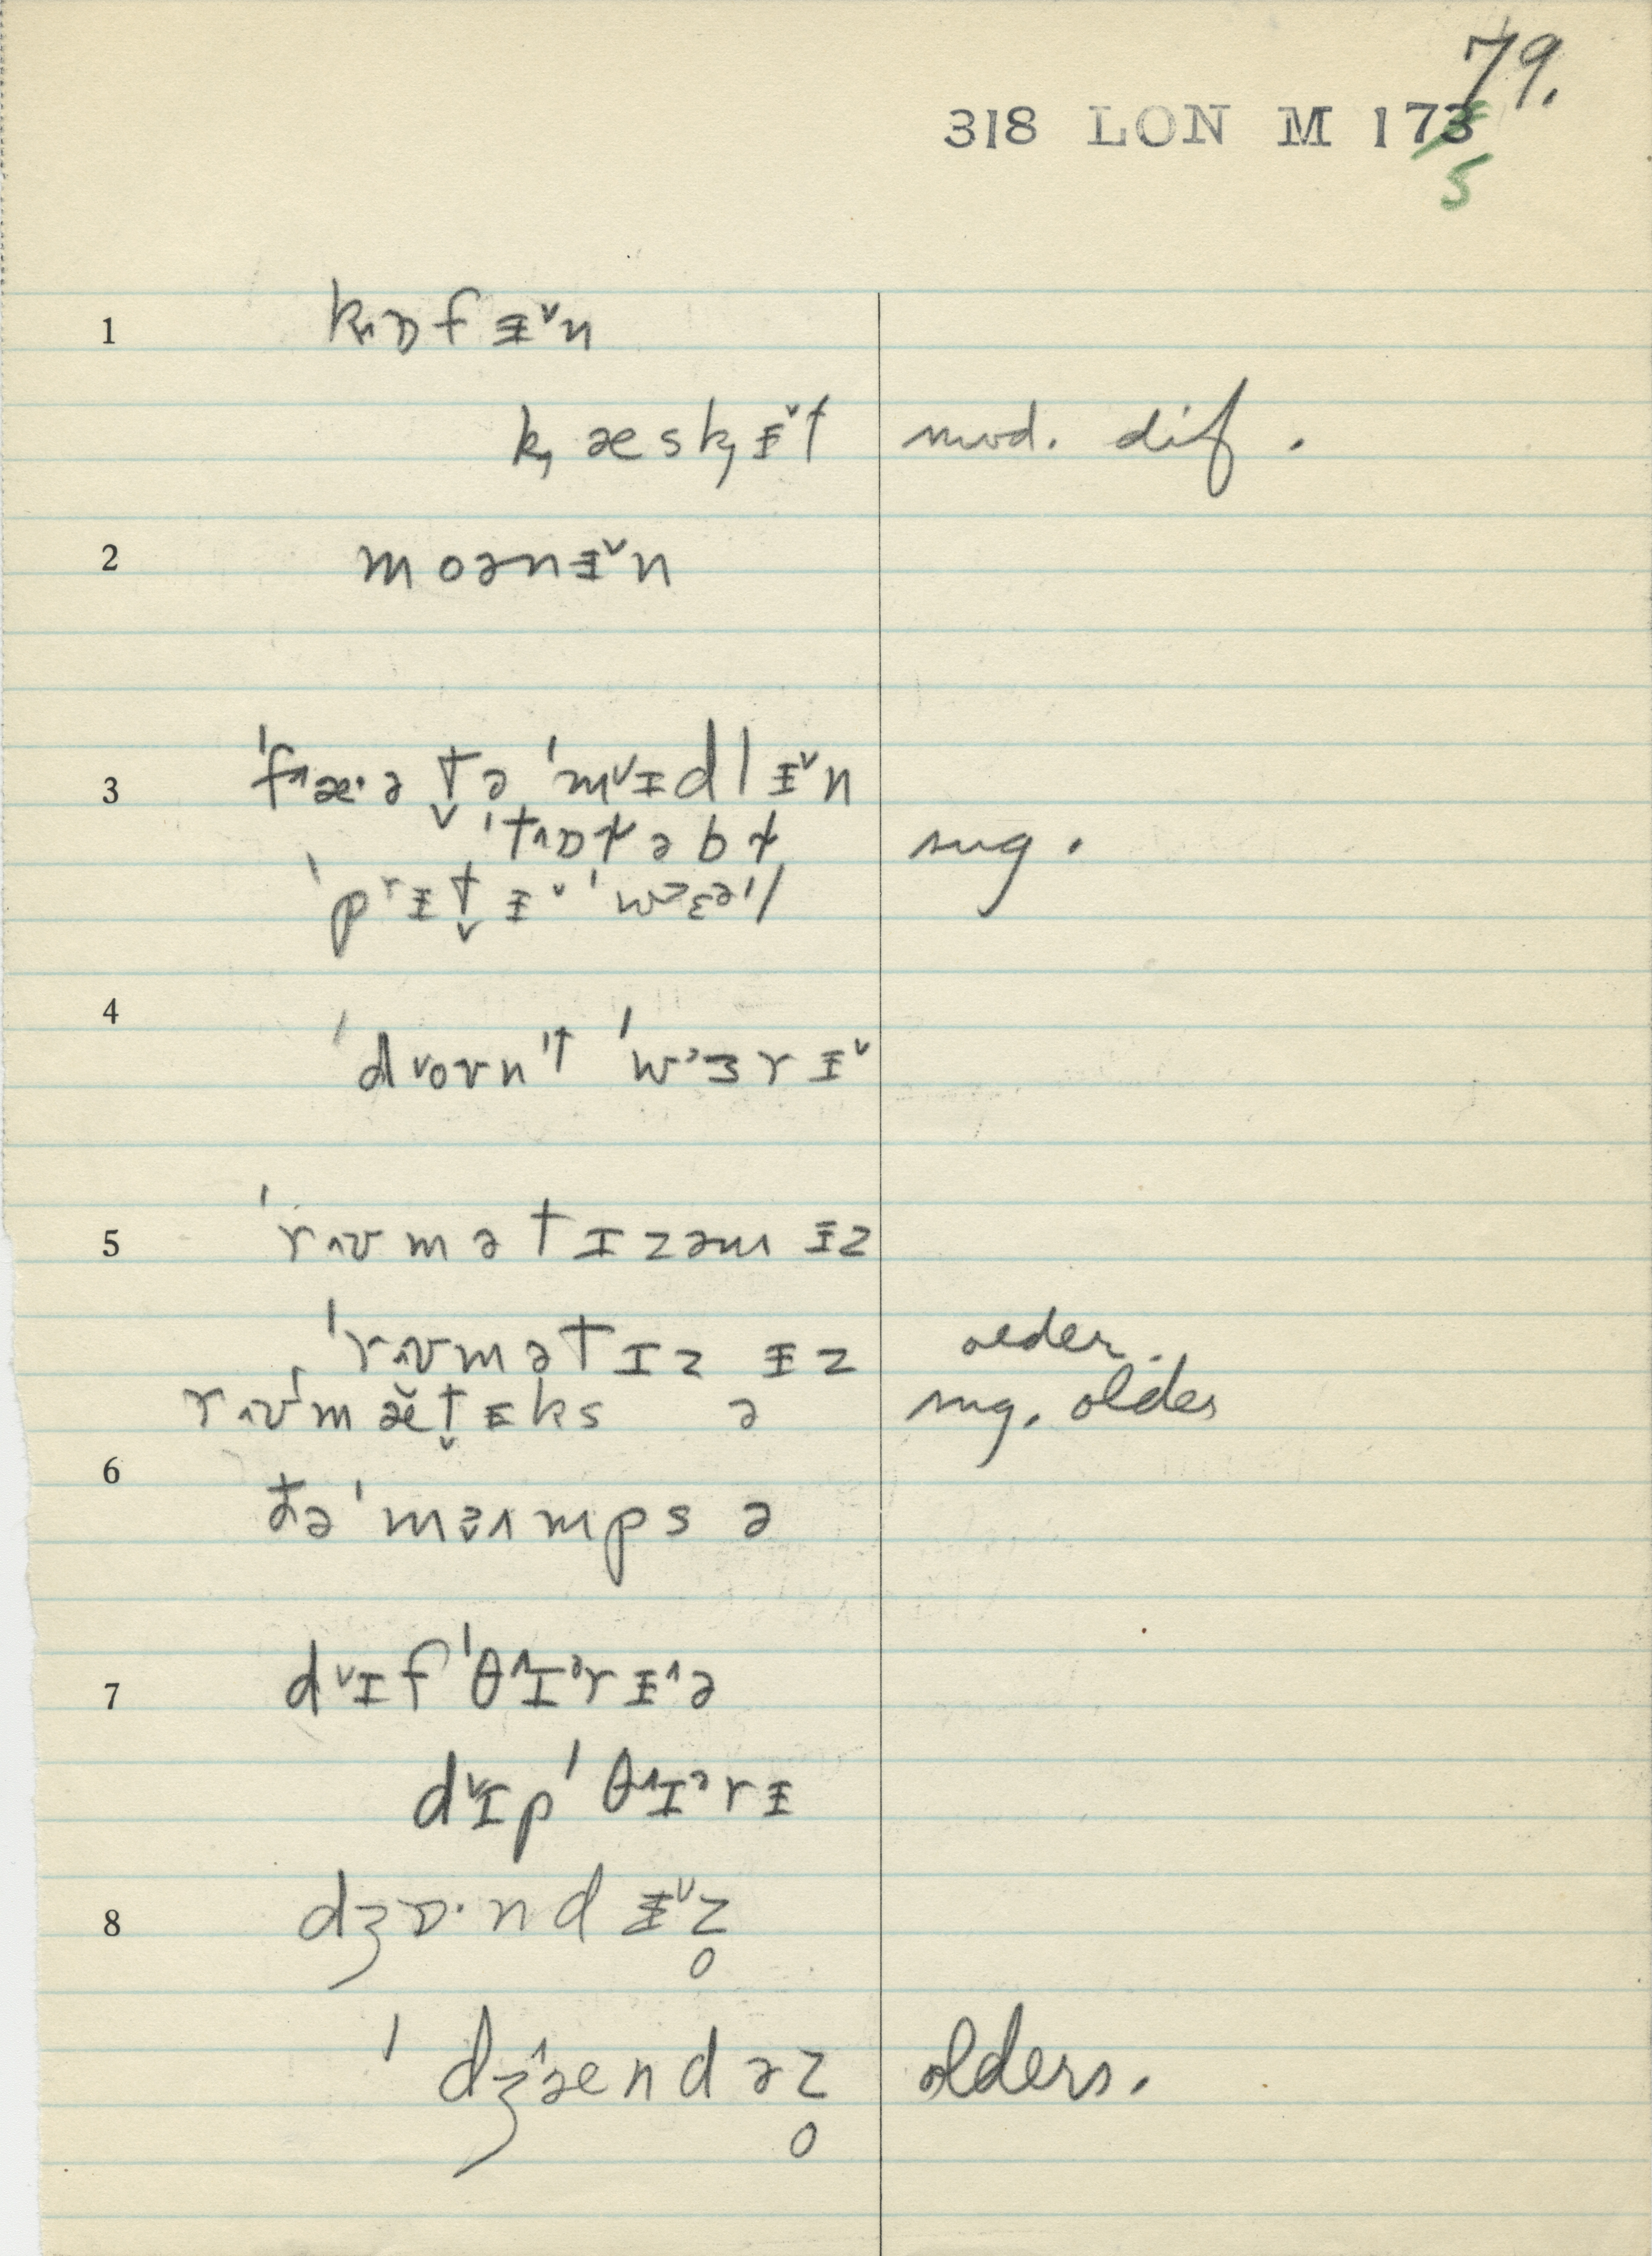 79.
318 LON M 173
5
1 k̦ɒf ᵻ˅n
k̦æsk̦ᵻ˅t mod. dif.
2 moənᵻ˅n
3 ˈf˄æ·ə t̬ə ˈm˅ɪdlᵻ˅n
ˈt˄ɒɫəbɫ sug.
ˈprᵻt̬ᵻ˅ ˈw
4 ˈd˅oʊnˈt ˈwᵊɜrᵻ˅
5 ˈr˄ʊmətɪzəm ᵻz
ˈr˄ʊmətɪz ᵻz older.
r˄ʊˈmæ̆t̬ᵻks ə sug. older
6
ðə ˈmɜ˄mps ə
7 d˅ɪfˈθ˄ɪᵊrᵻ˄ə
d˅ɪpˈθ˄ɪᵊrᵻ
8 dʒɒ·ndᵻ˅z̥
ˈdʒ˄ændəz̥ olders.